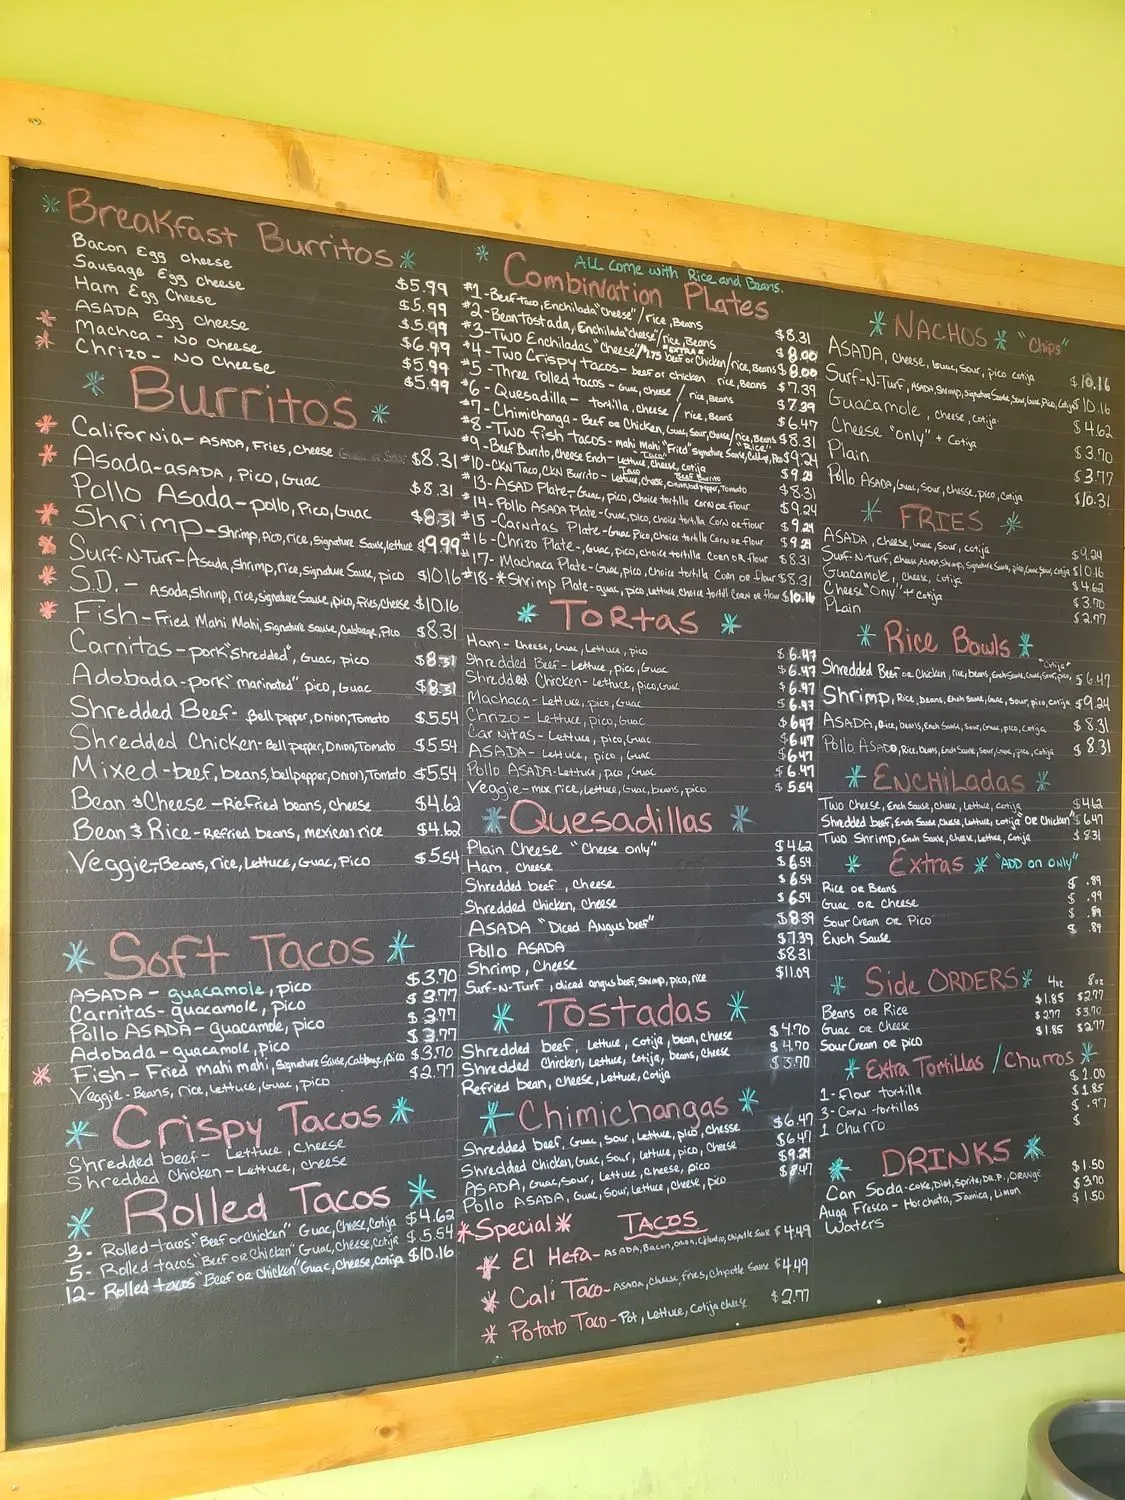 * Breakfast Burritos *
Bacon Egg cheese $5.99
Sausage Egg cheese $5.99
Ham Egg Cheese $5.99
ASADA Egg cheese $6.99
* Machca - NO cheese $5.99
* Chrizo - NO Cheese $5.99
* Burritos *
* California - ASADA, Fries, cheese $8.31
* Asada - ASADA, Pico, Guac $8.31
Pollo Asada - pollo, Pico, Guac $8.31
* Shrimp - Shrimp, Pico, rice, Signature Sause, lettuce $9.99
* Surf-N-Turf - Asada, Shrimp, rice, signature Sause, pico $10.16
* S.D. - Asada, Shrimp, rice, signature Sause, pico, fries, cheese $10.16
* Fish - Fried Mahi Mahi, Signature Sause, Cabbage, Pico $8.31
Carnitas - pork "Shredded", Guac, pico $8.31
Adobada - pork "marinated" pico, Guac $8.31
Shredded Beef - Bell pepper, Onion, Tomato $5.54
Shredded Chicken - Bell pepper, Onion, Tomato $5.54
Mixed - beef, beans, bellpepper, Onion, Tomato $5.54
Bean & Cheese - Refried beans, cheese $4.62
Bean & Rice - Refried beans, mexican rice $4.62
Veggie - Beans, rice, Lettuce, Guac, Pico $5.54
* Soft Tacos *
ASADA - guacamole, pico $3.70
Carnitas - guacamole, pico $3.77
Pollo ASADA - guacamole, pico $3.77
Adobada - guacamole, pico $3.77
* Fish - Fried mahi mahi, Signature Sause, Cabbage, Pico $3.70
Veggie - Beans, rice, Lettuce, Guac, pico $2.77
* Crispy Tacos
Shredded beef - Lettuce, Cheese
Shredded Chicken - Lettuce, cheese
* Rolled Tacos *
3 - Rolled tacos "Beef or Chicken" Guac, Cheese, Cotija $4.62
5 - Rolled tacos "Beef or Chicken" Guac, Cheese, Cotija $5.54
12 - Rolled tacos "Beef or chicken" Guac, cheese, cotija $10.16
* ALL Come with Rice and Beans.
Combination Plates
#1 - Beef taco, Enchilada "cheese" / rice, Beans $8.31
#2 - Bean Tostada, Enchilada "cheese" / rice, Beans $8.00
#3 - Two Enchiladas "Cheese" / 1.75 "EXTRA" beef or Chicken / rice, beans $8.00
#4 - Two Crispy tacos - beef or chicken rice, Beans $7.39
#5 - Three rolled tacos - Guac, cheese / rice, beans $7.39
#6 - Quesadilla - tortilla, cheese / rice, Beans $6.47
#7 - Chimichanga - Beef or Chicken, Guac, Sour, cheese / rice, Beans $8.31
#8 - Two fish tacos - mahi Mahi "Fried" signature Sause, Cabbage, Pico "Rice" $9.24
#9 - Beef Burrito, Cheese Ench - Lettuce, cheese, cotija
#10 - CKN Taco, CKN Burrito - Lettuce, chese, Onion, bell pepper, Tomato
#13 - ASAD Plate - Guac, pico, choice tortilla corn or flour
#14 - Pollo ASADA Plate - Guac, pico, choice tortilla Corn or flour
#15 - Carnitas Plate - Guac Pico, choice tortilla Corn or flour
#16 - Chrizo Plate - Guac, pico, choice tortilla Corn OR flour $8.31
#17 - Machaca Plate - Guac, pico, choice tortilla Corn or flour $8.31
#18 - * Shrimp Plate - guac, pico, Lettuce, choice tortill corn or flour $10.16
* Tortas *
Ham - Cheese, Guac, Lettuce, pico $6.47
Shredded Beef - Lettuce, pico, Guac $6.47
Shredded Chicken - Lettuce, pico, Guac $6.47
Machaca - Lettuce, pico, Guac $6.47
Chrizo - Lettuce, pico, Guac $6.47
Carnitas - Lettuce, pico, Guac $6.47
ASADA - Lettuce, pico, Guac $6.47
Pollo ASADA - Lettuce, pico, Guac $6.47
Veggie - mix rice, Lettuce, Guac, beans, pico $5.54
* Quesadillas *
Plain Cheese "Cheese only" $4.62
Ham, Cheese $6.54
Shredded beef, cheese $6.54
Shredded chicken, Cheese $6.54
ASADA "Diced Angus beef" $8.39
Pollo ASADA $7.39
Shrimp, Cheese $8.31
Surf-N-Turf, diced angus beef, Shrimp, pico, rice $11.09
* Tostadas *
Shredded beef, Lettuce, Cotija, bean, cheese $4.70
Shredded Chicken, Lettuce, Cotija, beans, cheese $4.70
Refried bean, cheese, Lettuce, Cotija $3.70
* Chimichangas *
Shredded beef, Guac, Sour, Lettuce, pico, Chesse $6.47
Shredded Chicken, Guac, Sour, Lettuce, pico, Cheese $6.47
ASADA, Guac, Sour, Lettuce, Cheese, pico $9.24
Pollo ASADA, Guac, Sour, Lettuce, Cheese, pico $8.47
* Special * TACOS
* El Hefa - ASADA, Bacon, onion, cilantro, Chipotle Sause $4.49
* Cali Taco - ASADA, Cheese, Fries, Chipotle Sause $4.49
* Potato Taco - Pot, Lettuce, Cotija chees $2.77
* NACHOS * "Chips"
ASADA, cheese, Guac, Sour, pico cotija $10.16
Surf-N-Turf, ASADA, Shrimp, Signature Sause, Sour, Guac, Pico, Cotija $10.16
Guacamole, cheese, cotija $4.62
Cheese "only" + Cotija $3.70
Plain $3.77
Pollo ASADA, Guac, Sour, Chesse, pico, Cotija $10.31
* FRIES *
ASADA, cheese, Guac, Sour, cotija $9.24
Surf-N-turf, Cheese, ASADA, Shrimp, signature Sause, pico, Guac, Sour, cotija $10.16
Guacamole, Cheese, Cotija $4.62
Cheese "Only" + Cotija $3.70
Plain $2.77
* Rice Bowls *
Shredded Beef or Chicken, rice, beans, Ench Sause, Guac, Sour, pico, "Cotija" $6.47
Shrimp, Rice, beans, Ench Sause, Guac, Sour, pico, Cotija $9.24
ASADA, Rice, beans, Ench Sause, Sour, Guac, pico, Cotija $8.31
Pollo ASADO, Rice, beans, Ench Sause, Sour, Guac, pico, Cotija $8.31
* ENCHiLadas *
Two Cheese, Ench Sause, Cheese, Lettuce, cotija $4.62
Shredded beef, Ench Sause, Cheese, Lettuce, cotija "OR Chicken" $6.47
Two Shrimp, Ench Sause, Cheese, Lettuce, Cotija $8.31
* Extras * "ADD on ONLY"
Rice or Beans $.89
Guac or Cheese $.99
Sour Cream or Pico $.89
Ench Sause $.89
* Side ORDERS * 4oz 8oz
Beans or Rice $1.85 $2.77
Guac or Cheese $2.77 $3.70
Sour Cream or pico $1.85 $2.77
* Extra Tortillas / Churros *
1 - Flour tortilla $1.00
3 - Corn tortillas $1.85
1 Churro $.97
$
* DRINKS *
Can Soda - coke, Diet, Sprite, DR.P., ORANGE $1.50
Auga Fresca - Horchata, Jamica, Limon $3.70
Waters $1.50